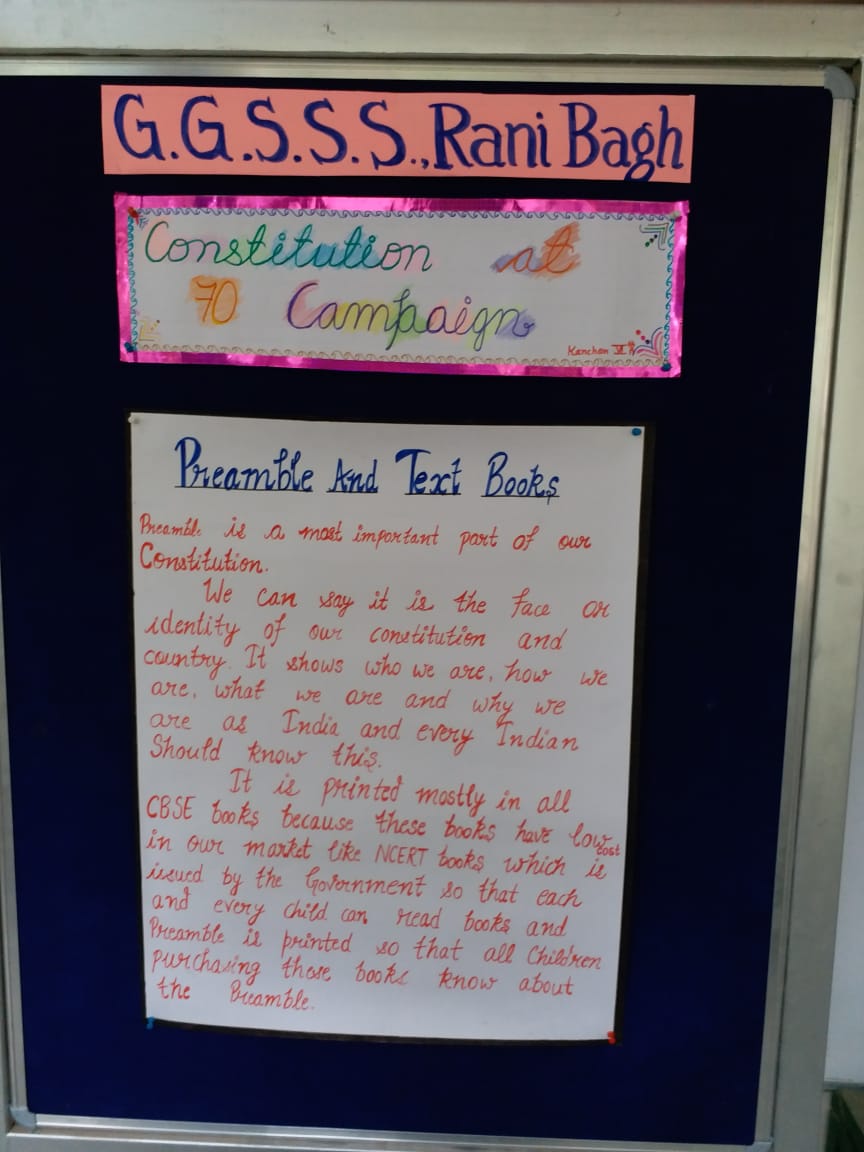 G.G.S.S.S., Rani Bagh
Constitution at
70 Campaign
Kanchan VI
Preamble And Text Books
Preamble is a most important part of our
Constitution.
We can say it is the face or
identity of our constitution and
country. It shows who we are, how we
are, what we are and why we
are as India and every Indian
Should know this.
It is printed mostly in all
CBSE books because these books have low cost
in our market like NCERT books which is
issued by the Government so that each
and every child can read books and
Preamble is printed so that all Children
purchasing those books know about
the Preamble.